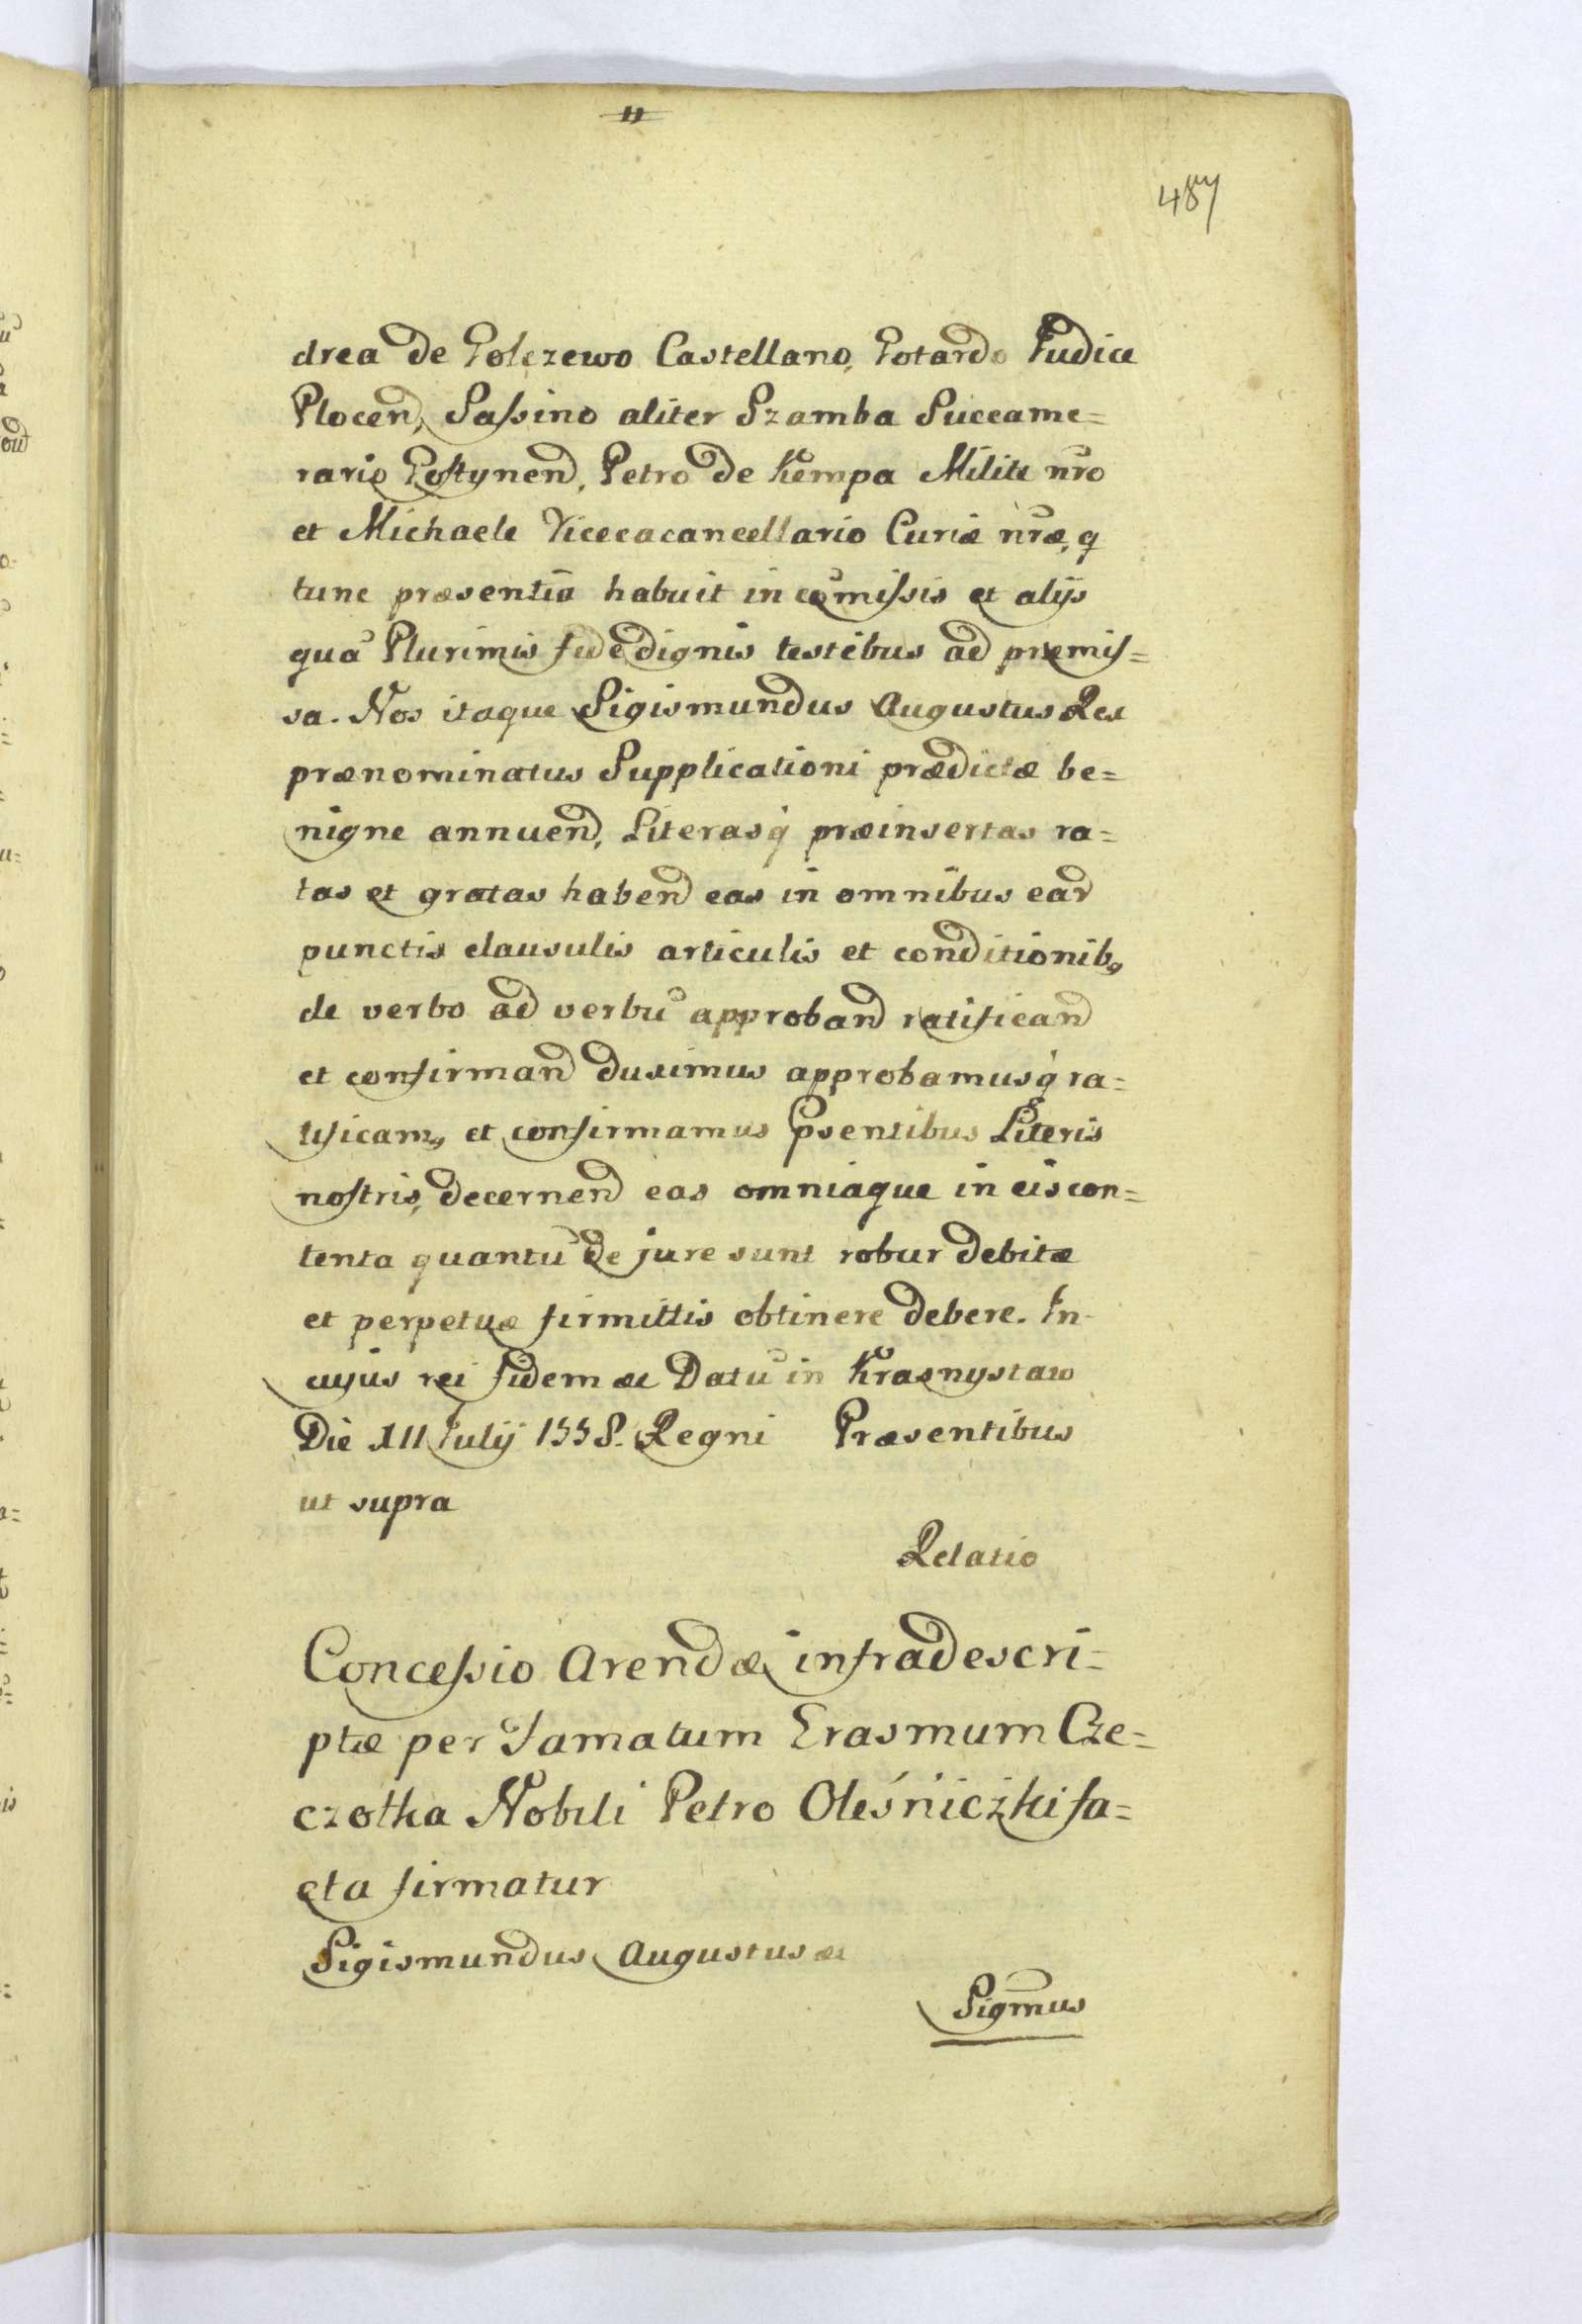 487
drea de Golczewo Castellano, Gotardo Iudice
Plocen, Saſsino aliter Szamba Succame=
rario Goſtynen, Petro de Kempa Milite nro
et Michaele Vicecacancellario Curiæ nræ, q
tunc præsentia habuit in comiſsis et alijs
qua Plurimis fide dignis testibus ad præmiſ=
sa. Nos itaque Sigismundus Augustus Rex
prænominatus Supplicationi prædictæ be=
nigne annuend, Literasq præinsertas ra=
tas et gratas habend eas in omnibus ear
punctis clausulis articulis et conditionib,
de verbo ad verbu approband ratificand
et confirmand duximus approbamusq ra=
tificam, et confirmamus psentibus Literis
noſtris, decernend eas omniaque in eis con=
tenta quantu de jure sunt robur debitæ
et perpetuæ firmittis obtinere debere. In
cujus rei fidem &c Datu in Krasnystaw
Die XII Iulij 1558. Regni Præsentibus
ut supra
Relatio
Conceſsio Arendæ infradescri=
ptæ per Famatum Erasmum Cze=
czotka Nobili Petro Oleśniczki fa=
cta firmatur
Sigismundus Augustus &c
Sigmus